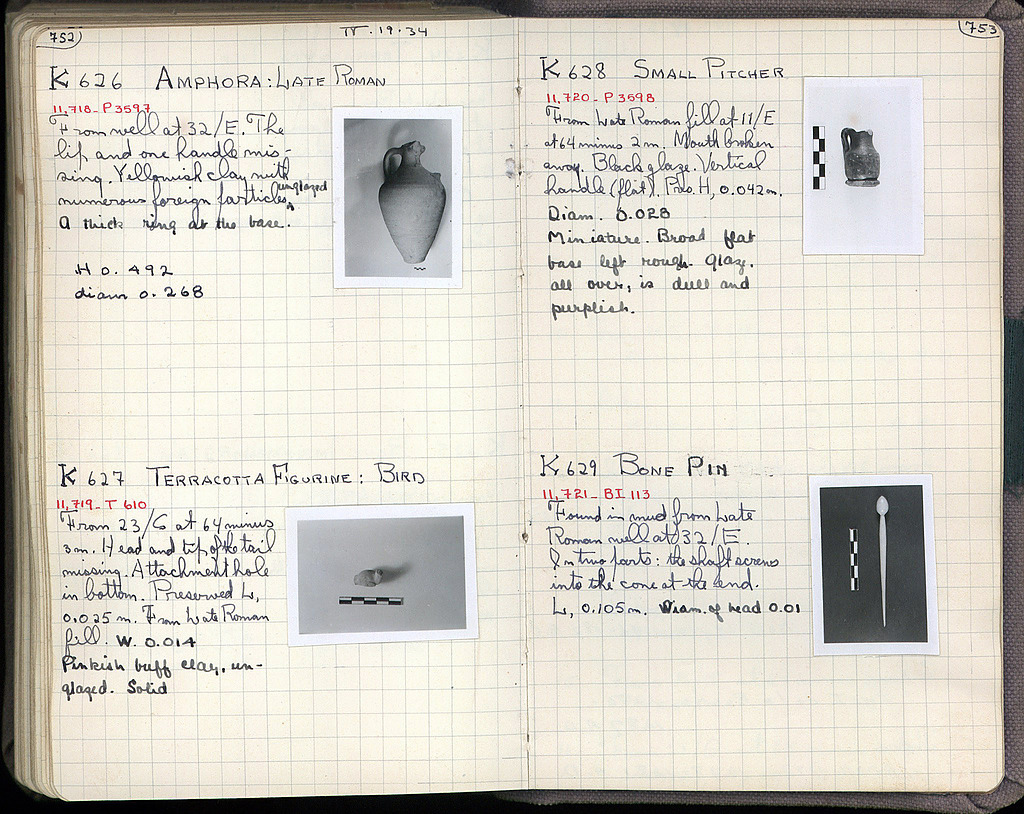 752
IV.19.34
K 626 AMPHORA: LATE ROMAN
11,718 - P 3597
From well at 32/E. The
lip and one handle mis-
sing. Yellowish clay with
numerous foreign particles, unglazed
A thick ring at the base.
H 0.492
diam 0.268
K 627 TERRACOTTA FIGURINE: BIRD
11,719 - T 610
From 23/G at 64 minus
3m. Head and tip of the tail
missing. Attachment hole
in bottom. Preserved L,
0,025 m. From Late Roman
fill. W. 0.014
Pinkish buff clay, un-
glazed. Solid
753
K 628 SMALL PITCHER
11,720 - P 3598
From Late Roman fill at 11/E
at 64 minus 2m. Mouth broken
away. Black glaze. Vertical
handle (flat). Pres. H, 0.042m.
Diam. 0.028
Miniature. Broad flat
base left rough. Glaze
all over, is dull and
purplish.
K 629 BONE PIN
11,721 - BI 113
Found in mud from Late
Roman well at 32/E.
In two parts: the shaft screws
into the cone at the end.
L, 0.105m. Diam. of head 0.01